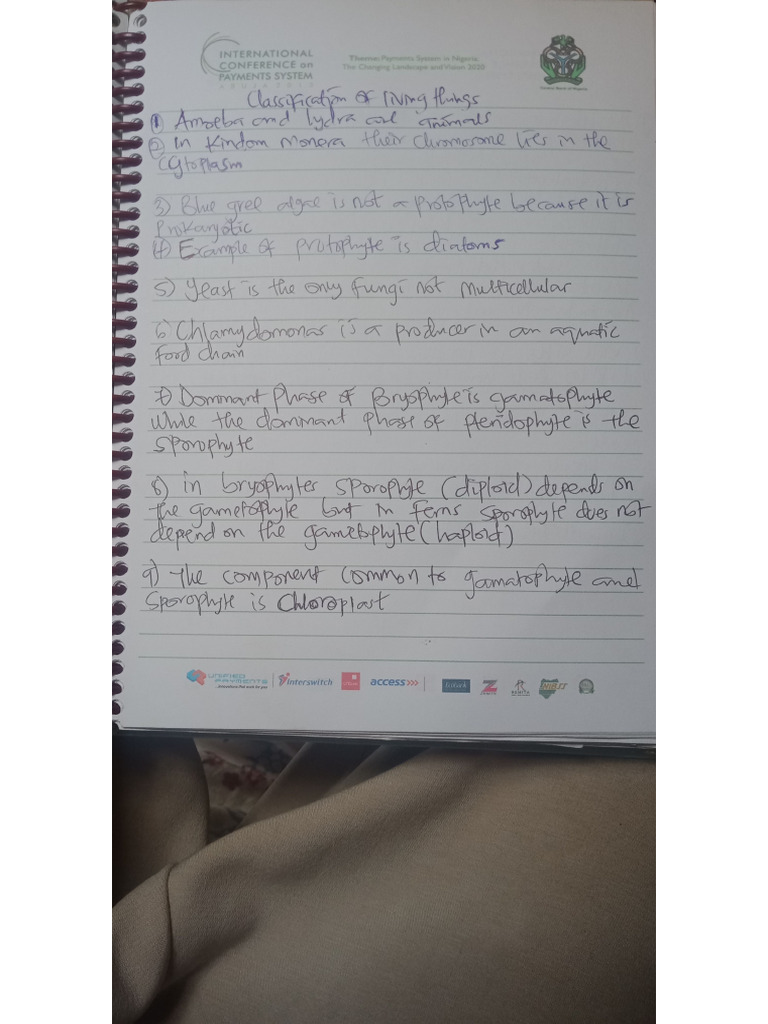 INTERNATIONAL
CONFERENCE on
PAYMENTS SYSTEM
Theme: Payments System in Nigeria:
The Changing Landscape and Vision 2020
Classification of living things
1) Amoeba and hydra are animals
2) In Kindom monera their chromosome lies in the
cytoplasm
3) Blue gree algae is not a protophyte because it is
prokaryotic
4) Example of protophyte is diatoms
5) Yeast is the only fungi not multicellular
6) Chlamydomonas is a producer in an aquatic
food chain
7) Dominant phase of Bryophyte is gamatophyte
while the dominant phase of pteridophyte is the
sporophyte
8) in bryophytes sporophyte (diploid) depends on
the gametophyte but in ferns sporophyte does not
depend on the gametophyte (haploid)
9) The component common to gamatophyte and
sporophyte is Chloroplast
interswitch
access>>>
NIBSS